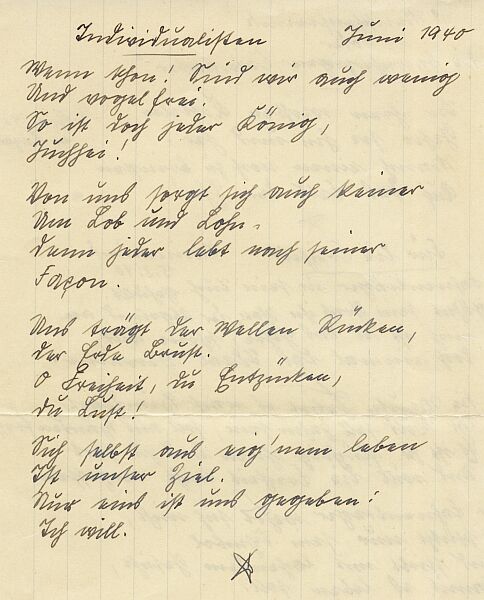 Individualisten Juni 1940
Wenn schon! Sind wir auch wenig
Und vogelfrei.
So ist doch jeder König,
Juchhei!
Von uns sorgt sich auch keiner
Um Lob und Lohn,
denn jeder lebt nach seiner
Façon.
Uns trägt der Wellen Rücken,
der Erde Brust.
O Freiheit, du Entzücken,
du Lust!
Sich selbst aus eig'nem leben
Ist unser Ziel.
Nur eins ist uns gegeben:
Ich will.